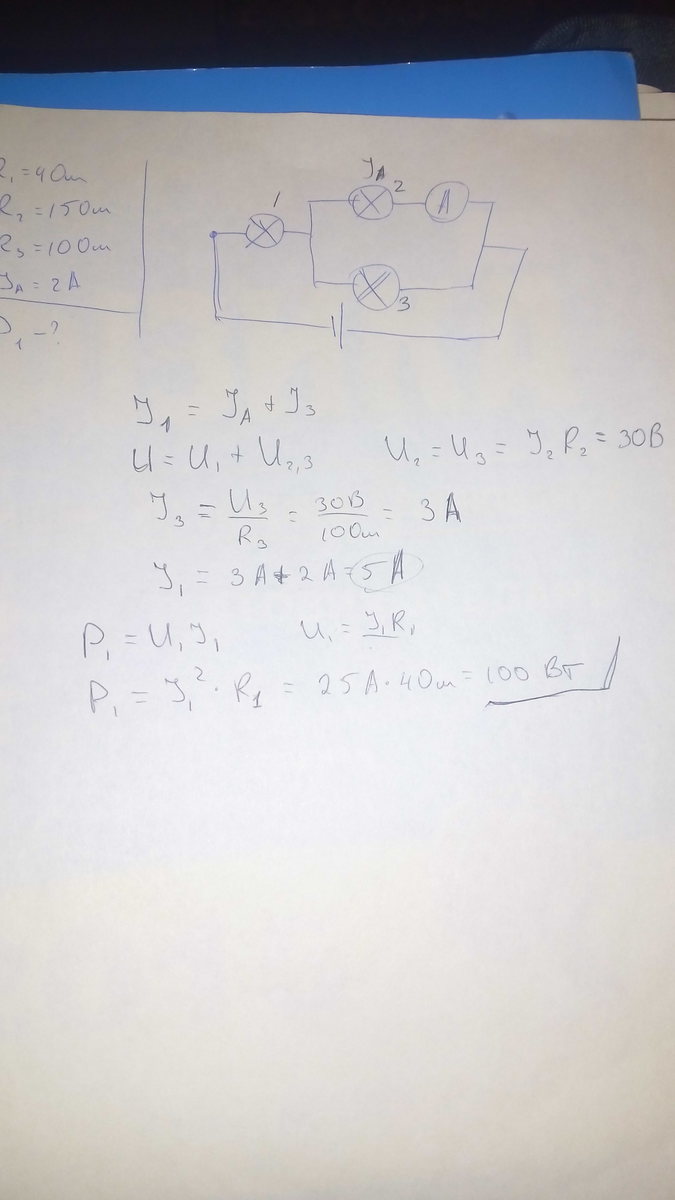 R₁ = 4 Ом
R₂ = 15 Ом
R₃ = 10 Ом
J_A = 2 A
P₁ - ?
1
J_A
2
A
3
J₁ = J_A + J₃
U = U₁ + U₂,₃ U₂ = U₃ = J₂ R₂ = 30 В
J₃ = U₃/R₃ = 30В/10 Ом = 3 A
J₁ = 3 A + 2 A = 5 A
P₁ = U₁ J₁ U₁ = J₁ R₁
P₁ = J₁² · R₁ = 25 A · 4 Ом = 100 Вт